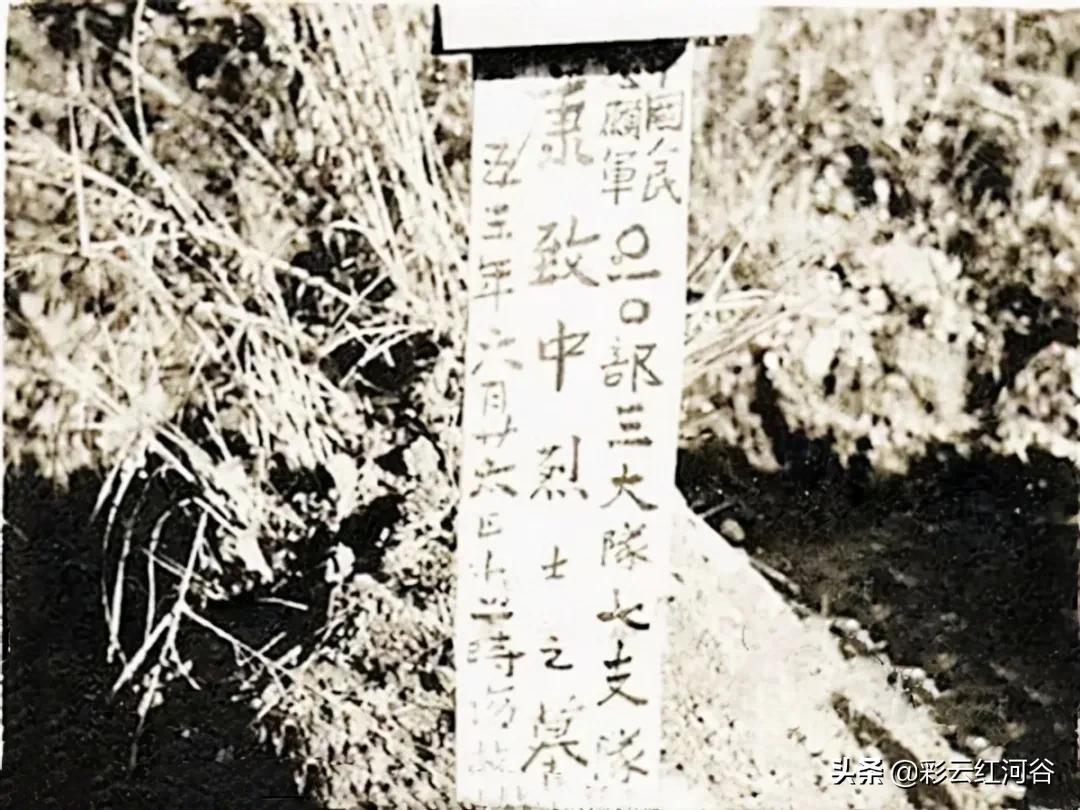 国人民
願軍〇一〇部三大隊七支隊
康致中烈士之墓
五三年六月廿六日 時
头条 @彩云红河谷